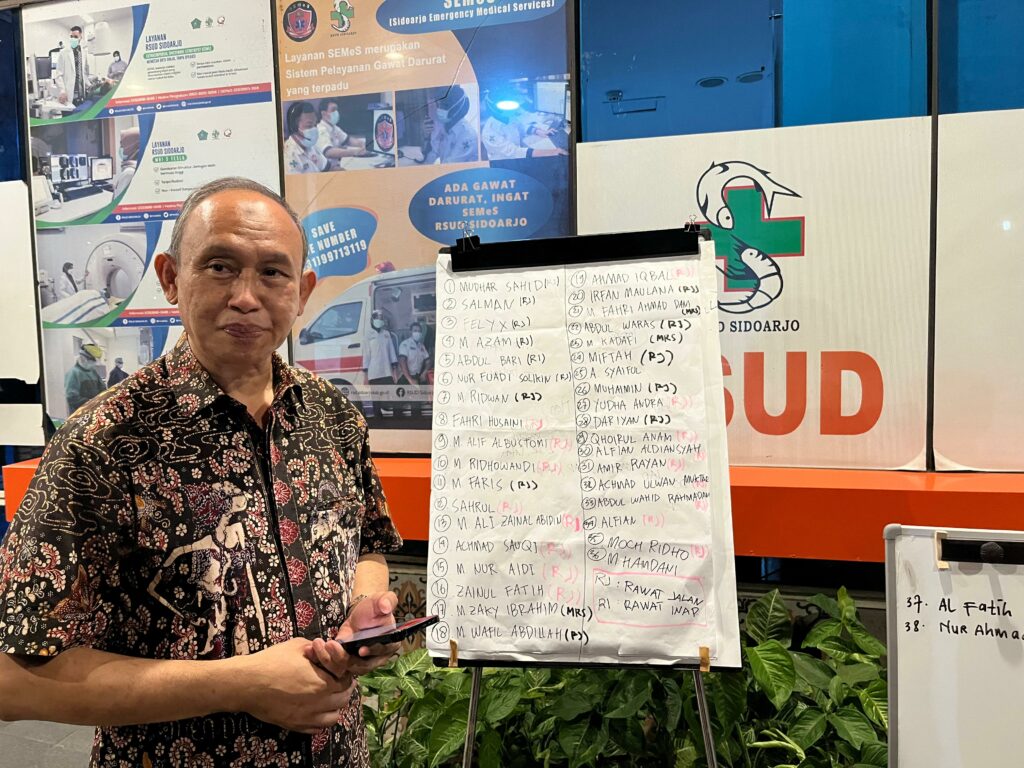 LAYANAN
RSUD SIDOARJO
LAYANAN
RSUD SIDOARJO
SEMeS
(Sidoarjo Emergency Medical Services)
Layanan SEMeS merupakan
Sistem Pelayanan Gawat Darurat
yang terpadu
ADA GAWAT
DARURAT, INGAT
SEMeS
RSUD SIDOARJO
SAVE
NUMBER
1)99713119
RSUD SIDOARJO
SIDOARJO
SUD
1 MUDHAR SAHIDI
2 SALMAN (RJ)
3 FELYX (RJ)
4 M AZAM (RJ)
5 ABDUL BARI (RI)
6 NUR FUADI SOLIKIN (RJ)
7 M RIDWAN (RJ)
8 FAHRI HUSAINI (RJ)
9 M ALIF ALBUSTOMI (RJ)
10 M RIDHOWANDI (RJ)
11 M FARIS (RJ)
12 SAHRUL (RJ)
13 M ALI ZAINAL ABIDIN (RJ
14 ACHMAD SAUQI (RJ)
15 M NUR AIDI (RJ)
16 ZAINUL FATIH (RJ)
17 M ZAKY IBRAHIM (MRS)
18 M WAFIL ABDILLAH (RJ)
19 AHMAD IQBAL (RJ)
20 IRFAN MAULANA (RJ)
21 M FAHRI AHMAD DANI (MRS)
22 ABDUL WARAS (RJ)
23 M KADAFI (MRS)
24 MIFTAH (RJ)
25 A. SYAIFUL
26 MUHAIMIN (RJ)
27 YUDHA ANDRA (RJ)
28 DARIYAN (RJ)
29 QHOIRUL ANAM (RJ)
30 ALFIAN ALDIANSYAH
31 AMIR RAYAN (RJ)
32 ACHMAD ULWAN
33 ABDUL WAHID RAHMADAN (RJ)
34 ALFIAN (RJ)
35 MOCH RIDHO (RJ)
36 M HAMDANI
RJ : RAWAT JALAN
RI : RAWAT INAP
37. AL Fatih
38. Nur Ahma